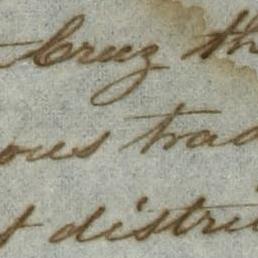 Cruz th
ous trad
t distri